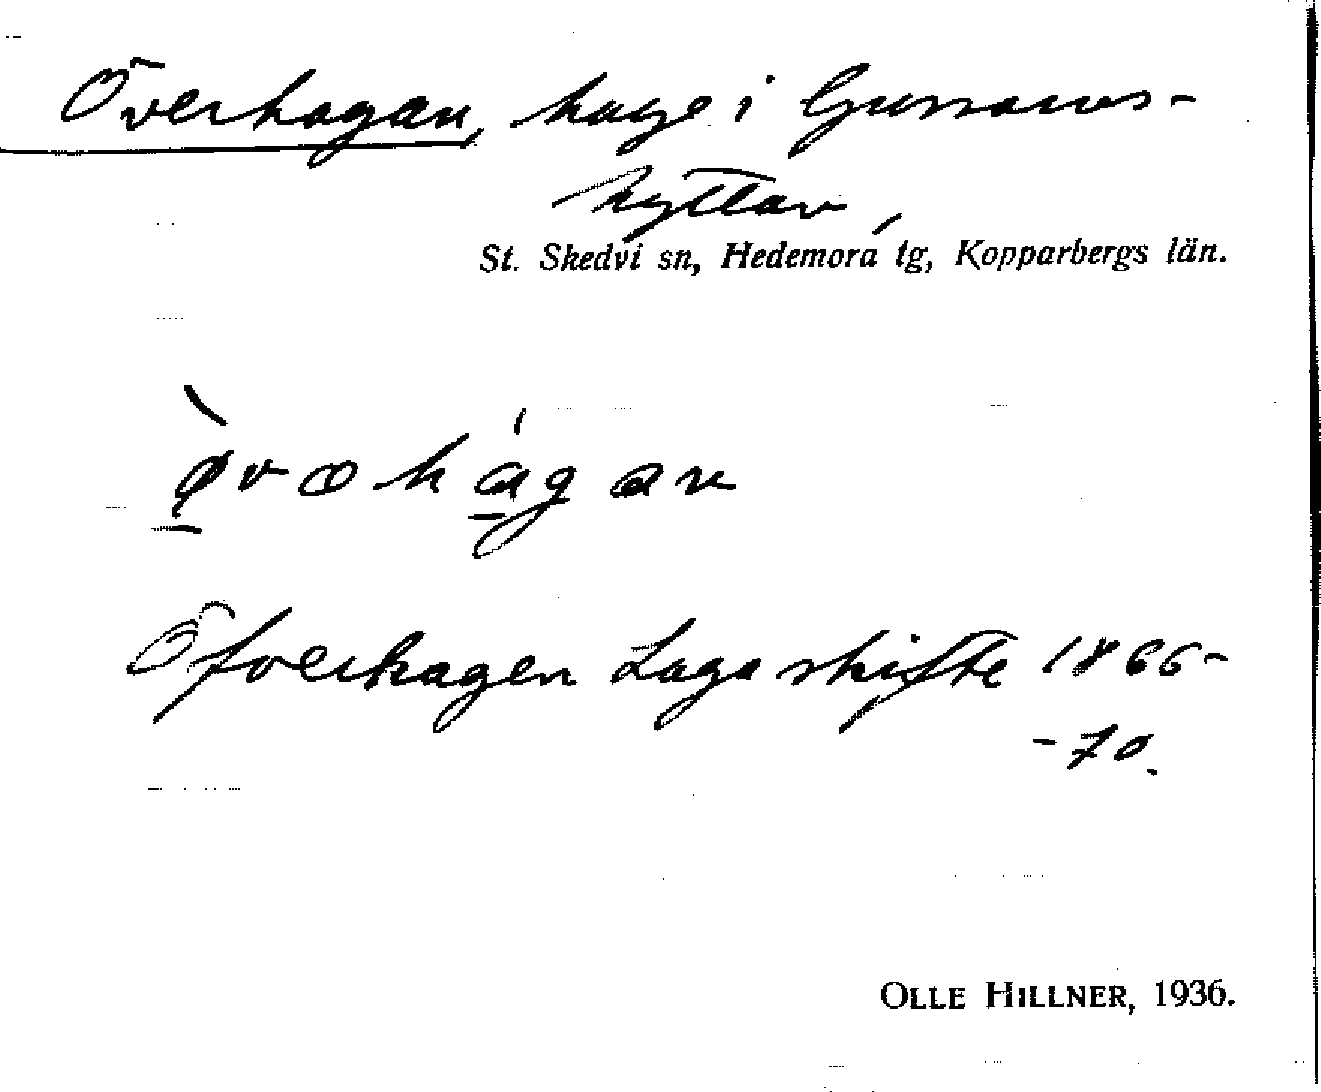 Överhagan, hage i Gunnars-
hyttan,
St. Skedvi sn, Hedemora tg, Kopparbergs län.
Öfverhagen Laga skifte 1866-
-70.
OLLE HILLNER, 1936.